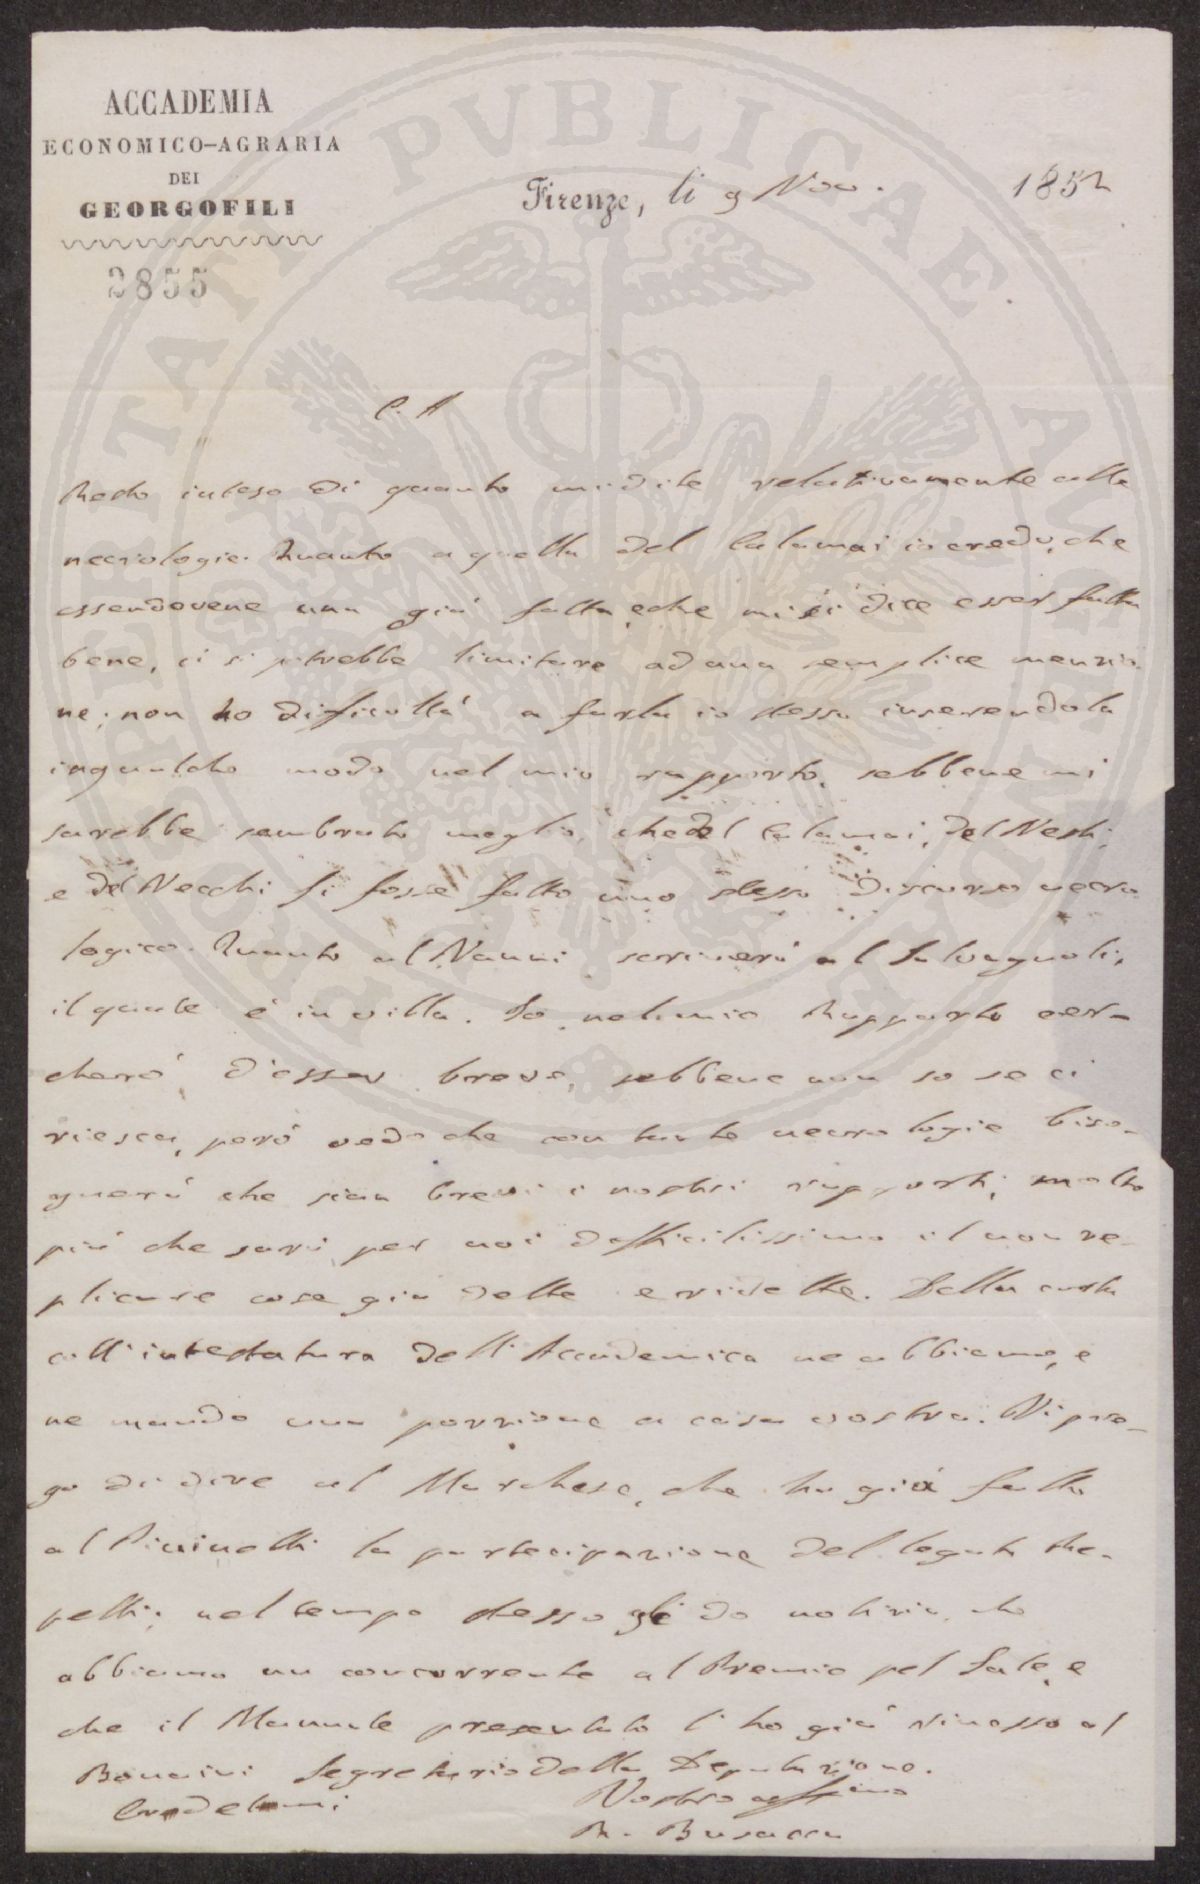 ACCADEMIA
ECONOMICO-AGRARIA
DEI
GEORGOFILI
Firenze, li 9 Nov. 1852
2855
PROSPERITATI PVBLICAE AVGENDAE
C. A
Resto inteso di quanto mi dite relativamente alle
necrologie. Quanto a quella del Calamai io credo, che
essendovene una già fatta, e che mi si dice esser fatta
bene, ci si potrebbe limitare ad una semplice menzio-
ne; non ho difficoltà a farla io stesso inserendola
in qualche modo nel mio rapporto, sebbene mi
sarebbe sembrato meglio, che del Calamai, del Nesti,
e del Vecchi si fosse fatto uno stesso discorso necro-
logico. Quanto al Nanni scriverò al Salvagnoli,
il quale è in villa. Io nel mio Rapporto cer-
cherò d'esser breve, sebbene non so se ci
riesca, però vedo che con tante necrologie biso-
gnerà che sian brevi i nostri rapporti; molto
più che sarà per noi difficilissimo il non re-
plicare cose già dette e ridette. Della carta
coll'intestatura dell'Accademica ne abbiamo, e
ne mando una porzione a casa vostra. Vi pre-
go di dire al Marchese, che ho già fatto
al la partecipazione del legato
nel tempo stesso gli do notizia, che
abbiamo un concorrente al Premio pel Sale, e
che il Manuale presentato l'ho già rimesso al
Segretario della Deputazione.
Credetemi
Vostro affmo
R. Busacca